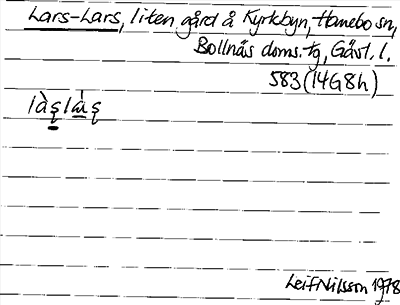 Lars-Lars, liten gård å Kyrkbyn, Hanebo sn,
Bollnäs doms. tg, Gävl. l.
583 (14G8h)
là̱ş lȧ̱ş
Leif Nilsson 1978